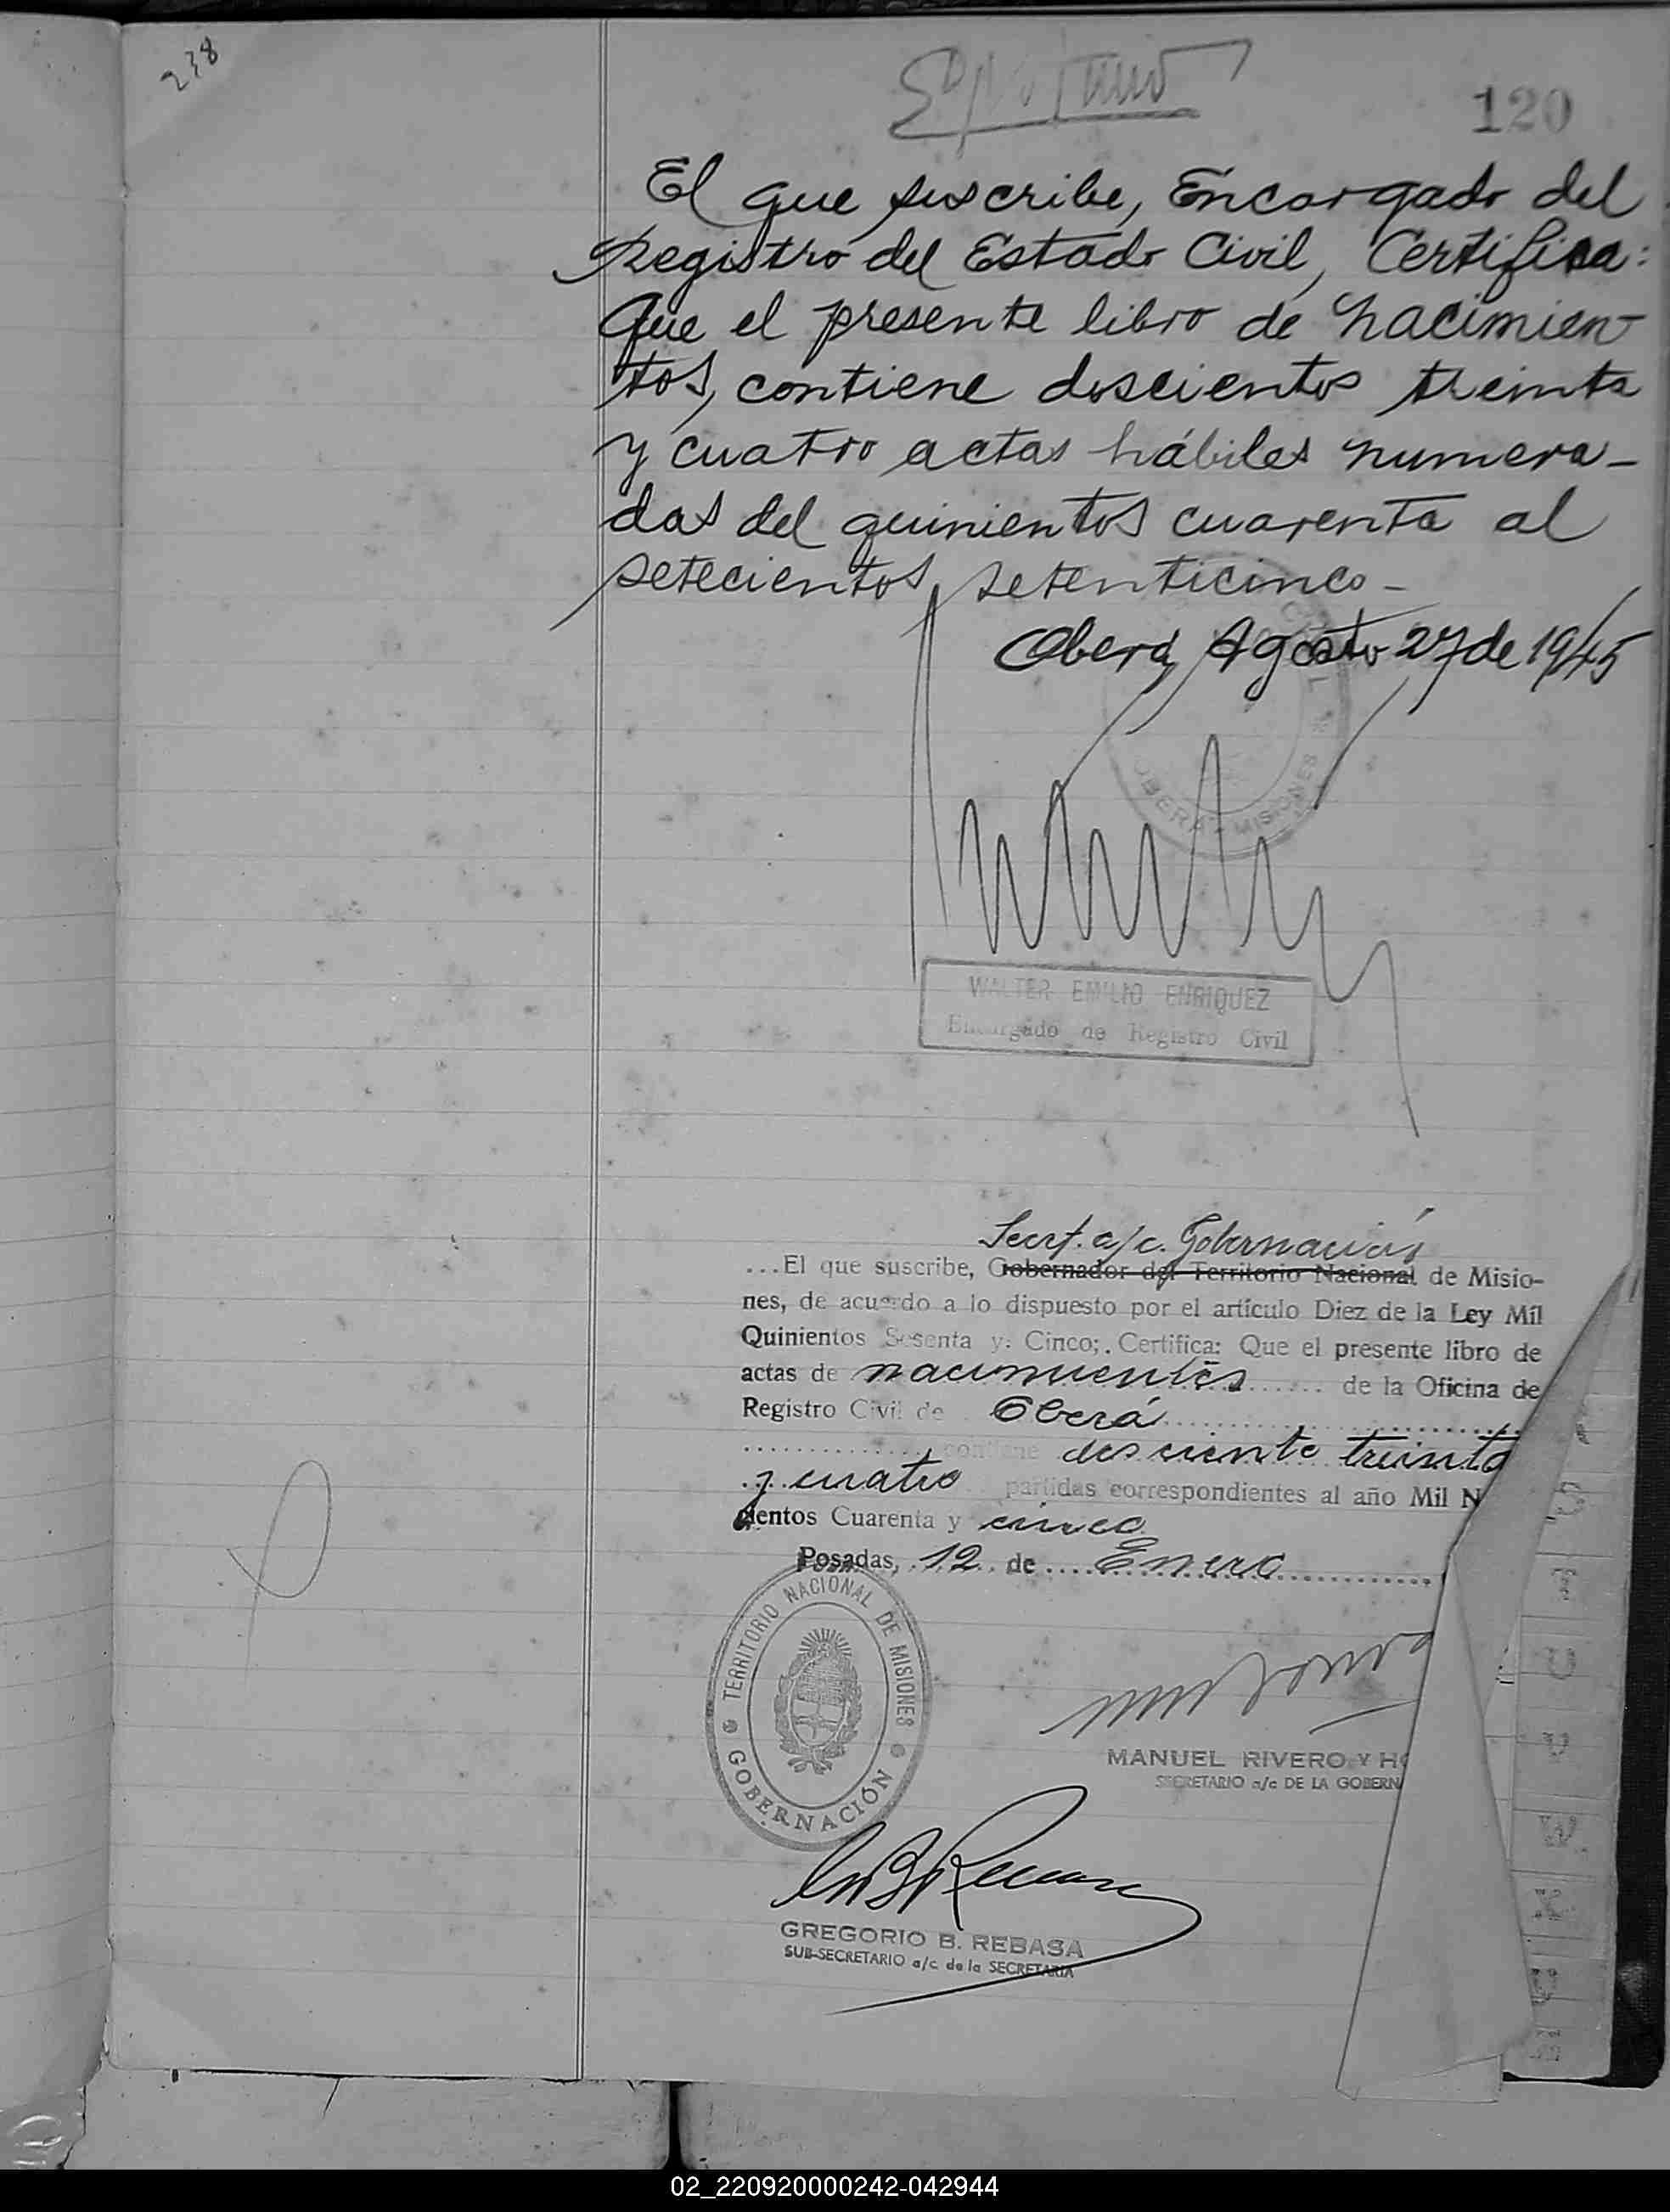 238
120
El que suscribe, Encargado del
Registro del Estado Civil, Certifica:
Que el presente libro de nacimien-
tos, contiene doscientos treinta
y cuatro actas hábiles numera-
das del quinientos cuarenta al
setecientos setenticinco -
Oberá, Agosto 27 de 1945
CIVIL
OBERÁ - MISIONES
WALTER EMILIO ENRIQUEZ
Encargado de Registro Civil
Secrt. a/c. Gobernación
...El que suscribe, Gobernador del Territorio Nacional de Misio-
nes, de acuerdo a lo dispuesto por el artículo Diez de la Ley Mil
Quinientos Sesenta y Cinco; Certifica: Que el presente libro de
actas de nacimientos de la Oficina de
Registro Civil de Oberá
contiene desciento treinta
y cuatro partidas correspondientes al año Mil N
cientos Cuarenta y cinco
Posadas, 12 de Enero
TERRITORIO NACIONAL DE MISIONES
GOBERNACIÓN
MANUEL RIVERO Y HO
SECRETARIO a/c DE LA GOBERN
GREGORIO B. REBASA
SUB-SECRETARIO a/c de la SECRETARIA
02_220920000242-042944